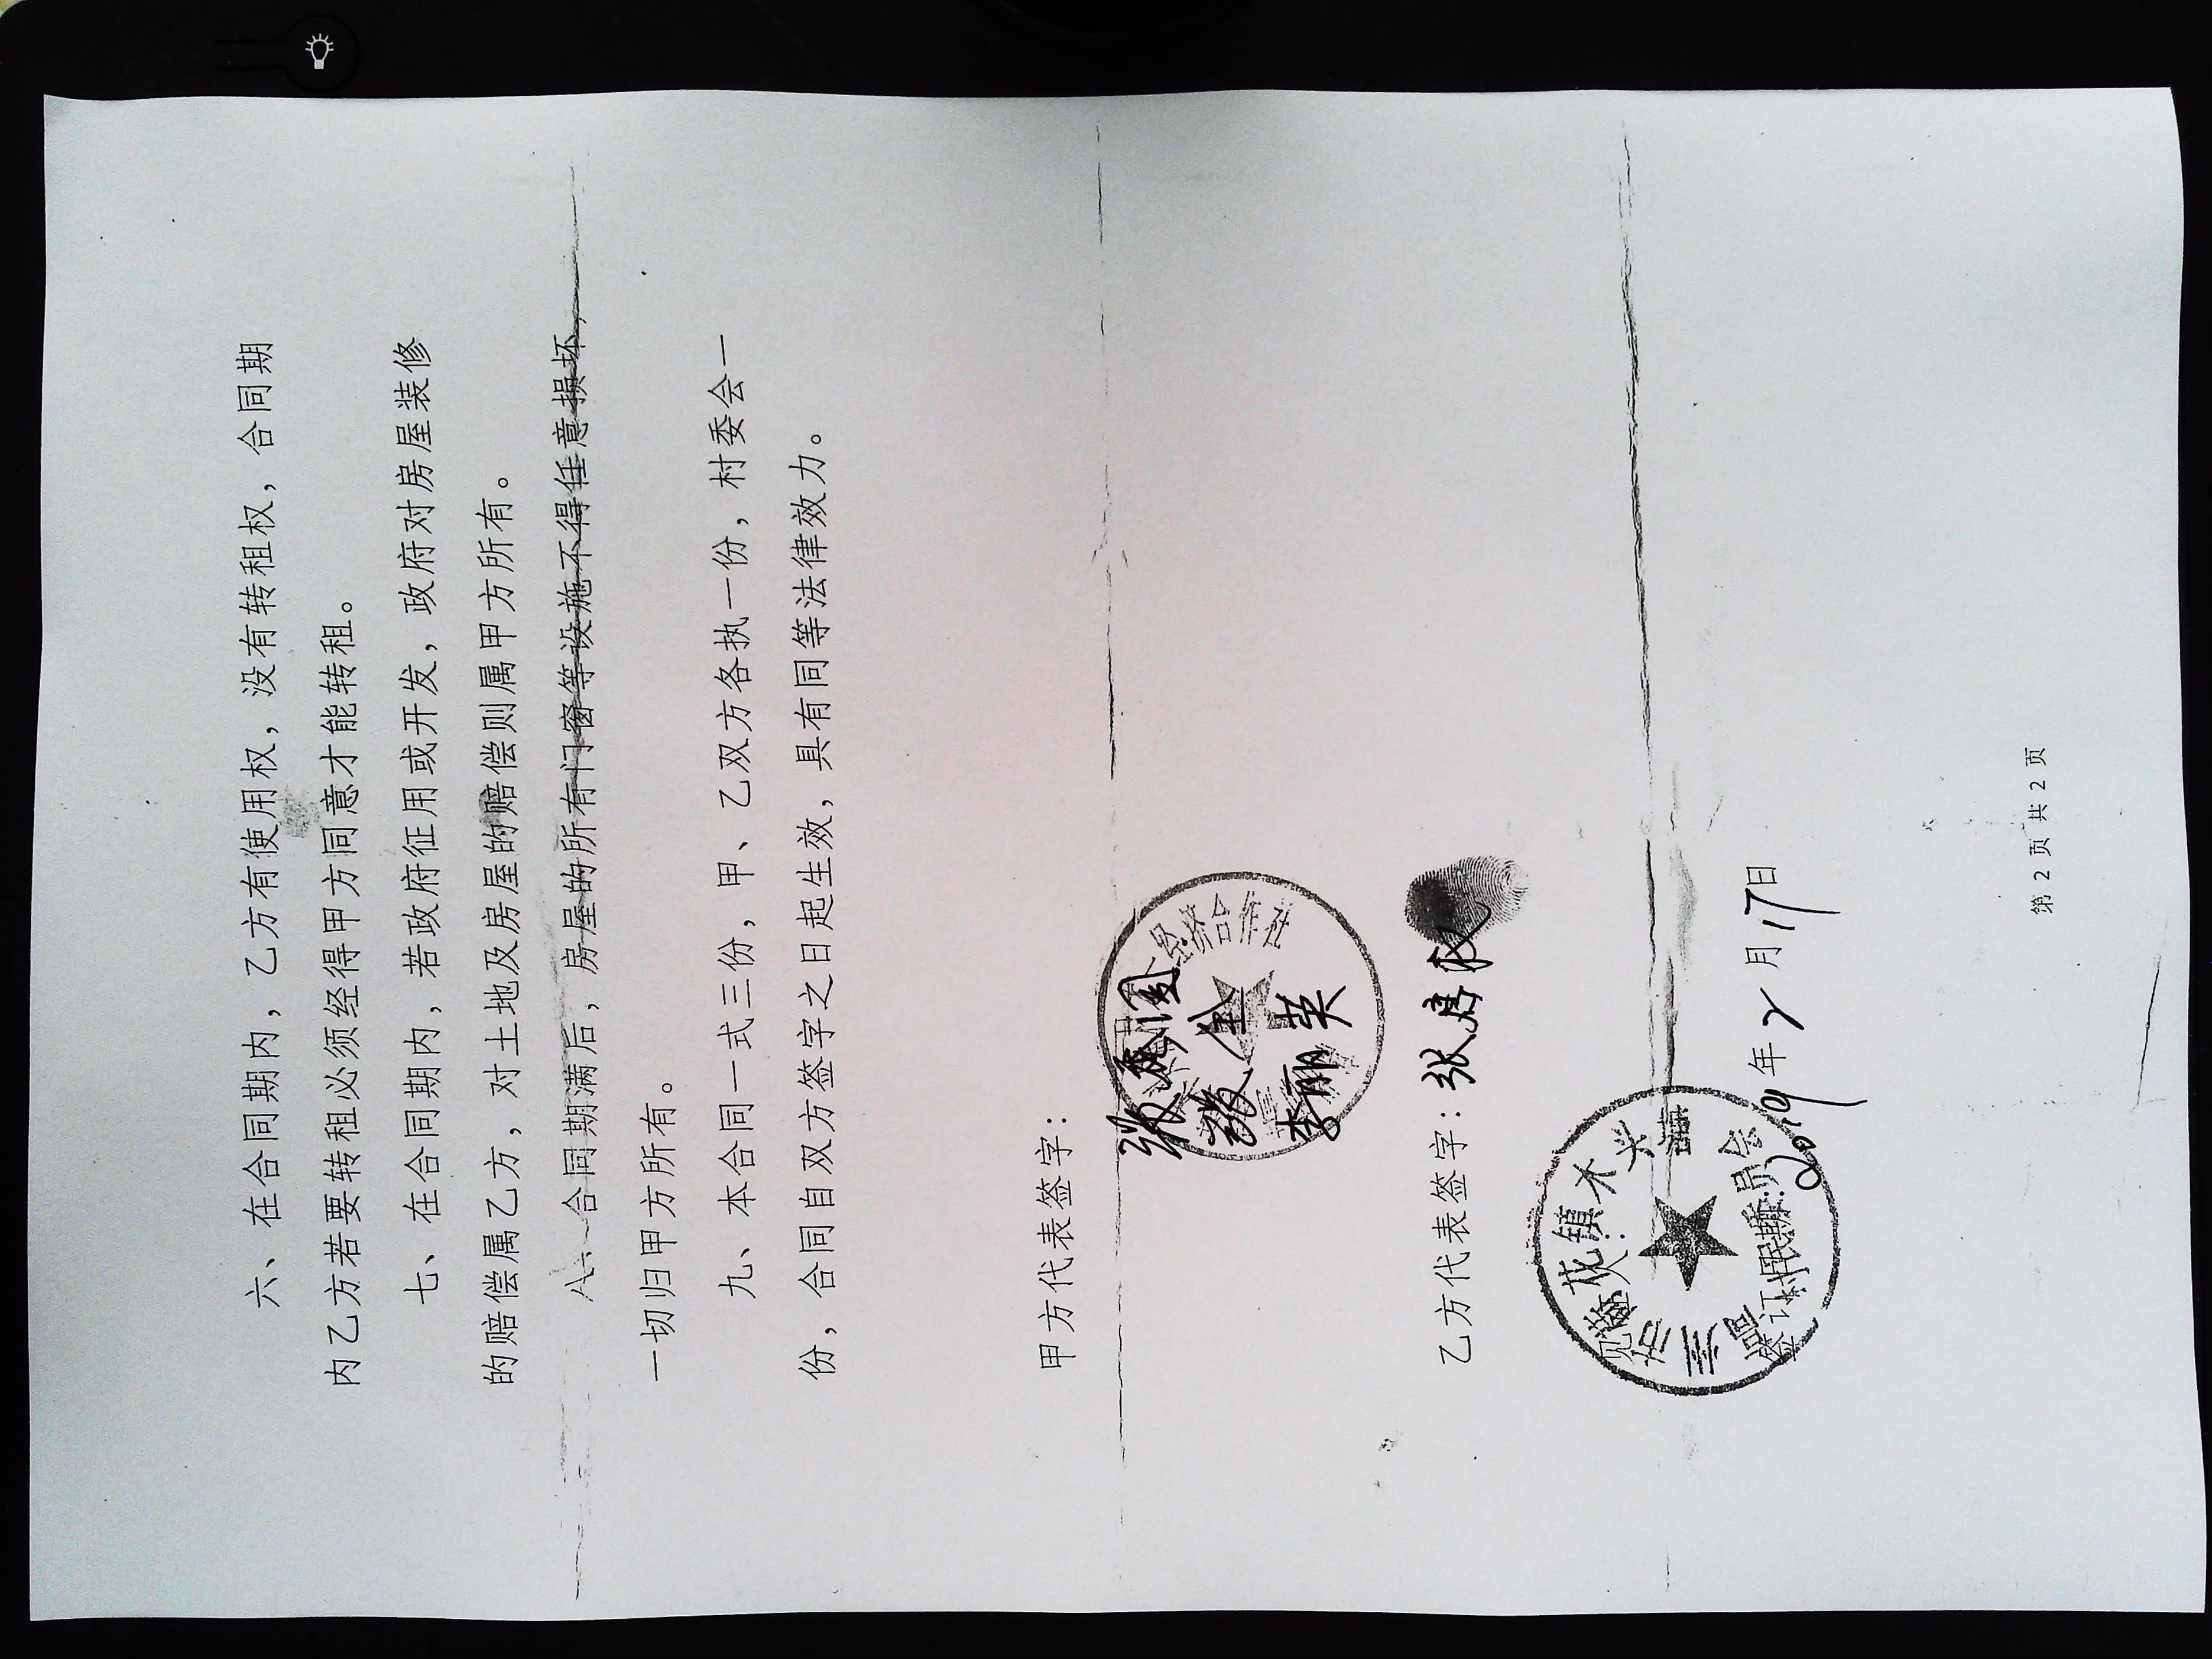 六、在合同期内，乙方有使用权，没有转租权，合同期
内乙方若要转租必须经得甲方同意才能转租。
七、在合同期内，若政府征用或开发，政府对房屋装修
的赔偿属乙方，对土地及房屋的赔偿则属甲方所有。
八、合同期满后，房屋的所有门窗等设施不得任意损坏，
一切归甲方所有。
九、本合同一式三份，甲、乙双方各执一份，村委会一
份，合同自双方签字之日起生效，具有同等法律效力。
甲方代表签字：
经济合作社
李丽英
乙方代表签字：张
花镇木兴
村民委员会
签订日期：2019年2月17日
第 2 页 共 2 页